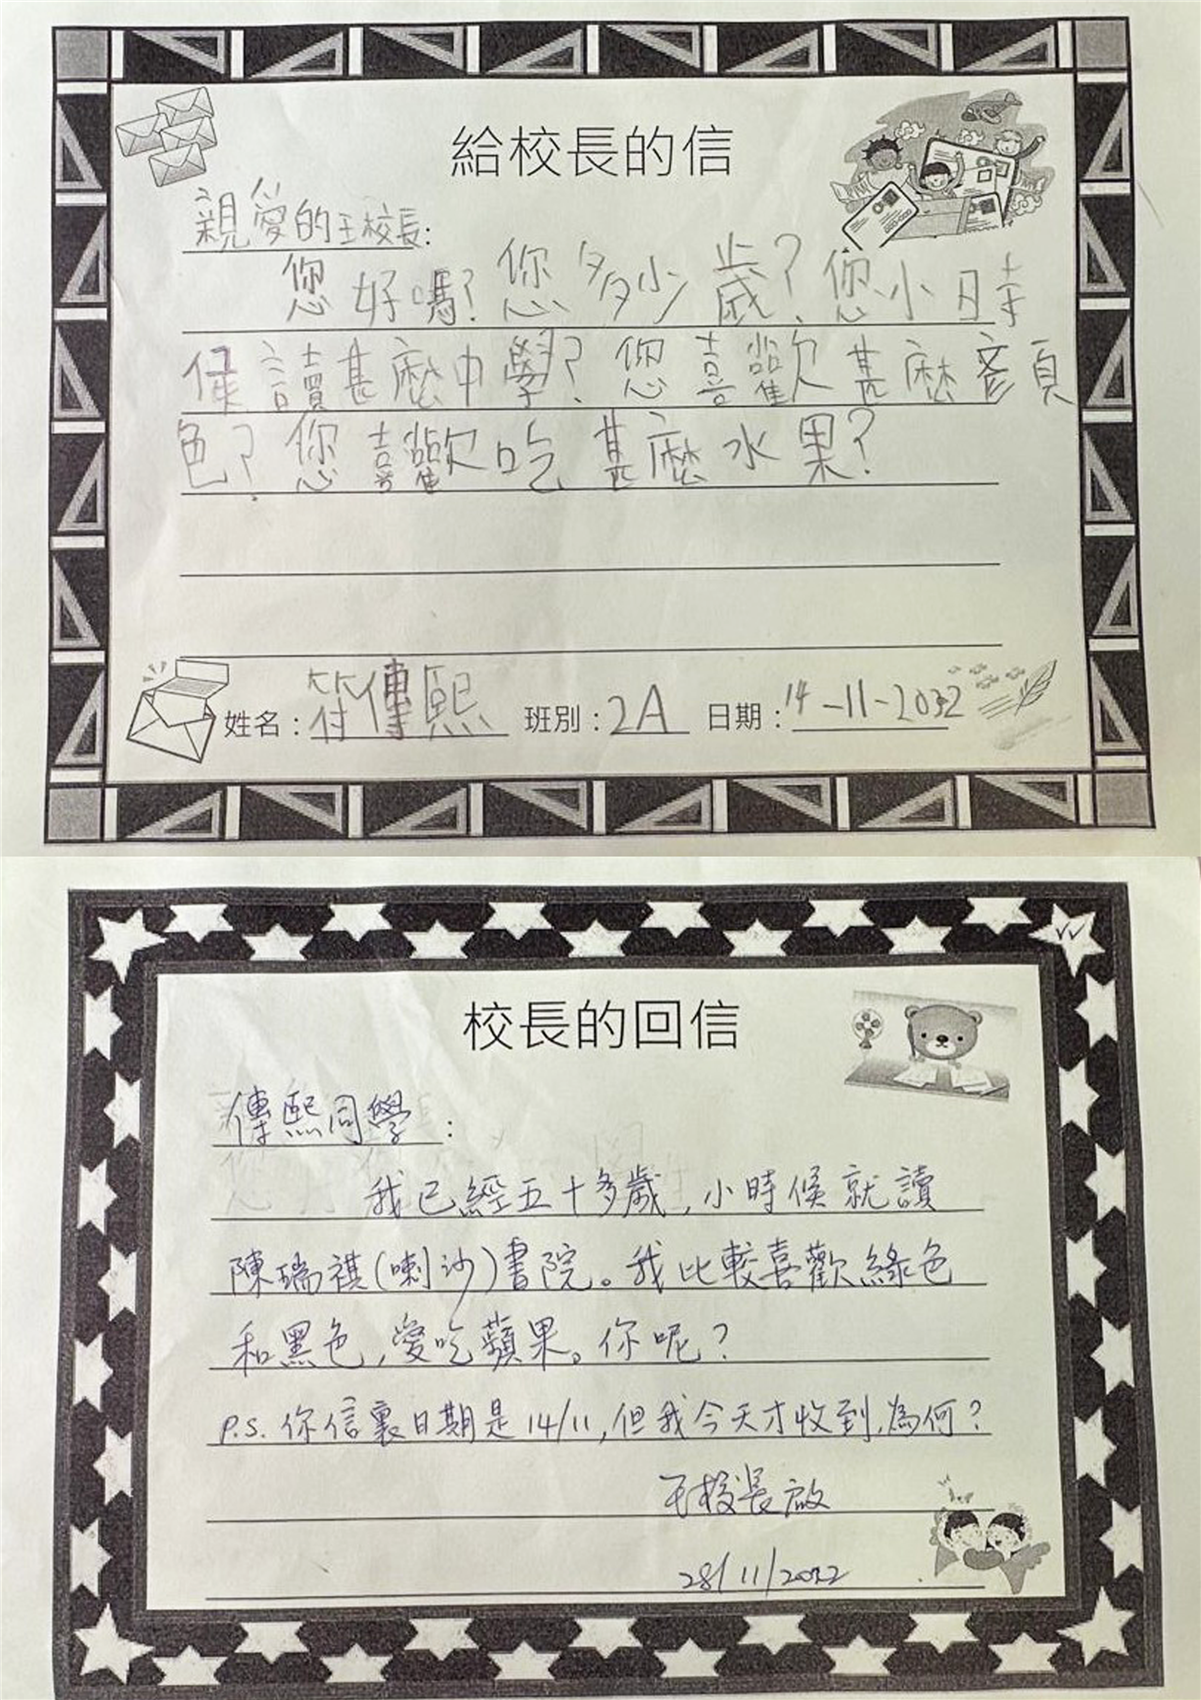 給校長的信
親愛的王校長:
您好嗎?您多少歲?您小時
候讀甚麼中學?您喜歡甚麼彥頁
色?您喜歡吃甚麼水果?
姓名:符傳熙 班別:2A 日期:14-11-2032
校長的回信
傳熙同學:
我已經五十多歲,小時候就讀
陳瑞祺(喇沙)書院。我比較喜歡綠色
和黑色,愛吃蘋果。你呢?
P.S. 你信裏日期是14/11,但我今天才收到,為何?
王校長啟
28/11/2032